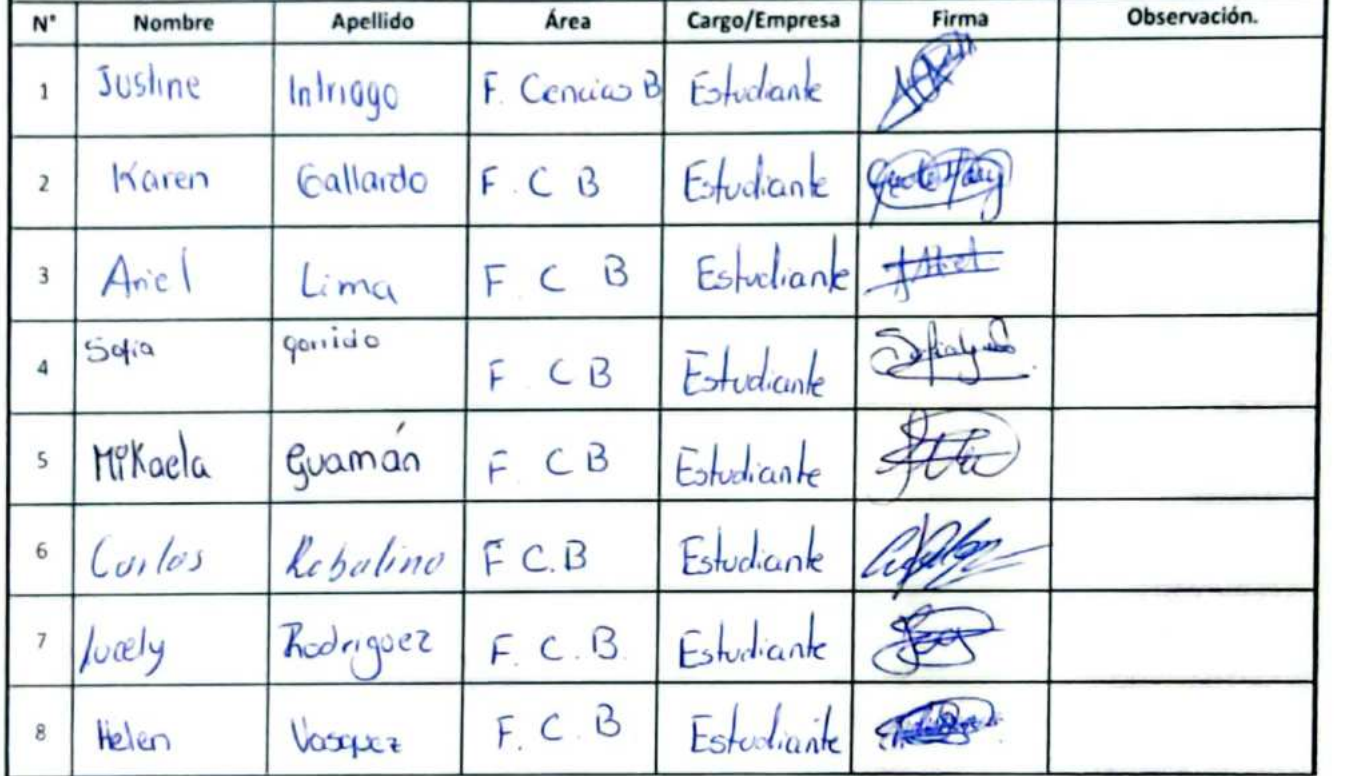 N° Nombre Apellido Área Cargo/Empresa Firma Observación.
1 Justine Intriago F. Cencias B Estudiante
2 Karen Gallardo F. C B Estudiante
3 Ariel Lima F. C B Estudiante
4 Sofia garrido F. C B Estudiante
5 Mikaela Guamán F. C B Estudiante
6 Carlos Robalino F C.B Estudiante
7 Jucely Rodriguez F. C. B. Estudiante
8 Helen Vasquez F. C. B Estudiante